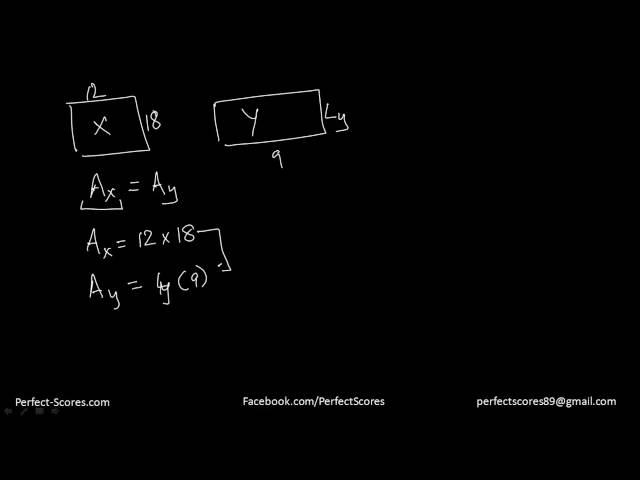 12
X 18 Y Ly
9
Ax = Ay
Ax = 12 x 18
Ay = Ly (9)
Perfect-Scores.com Facebook.com/PerfectScores perfectscores89@gmail.com